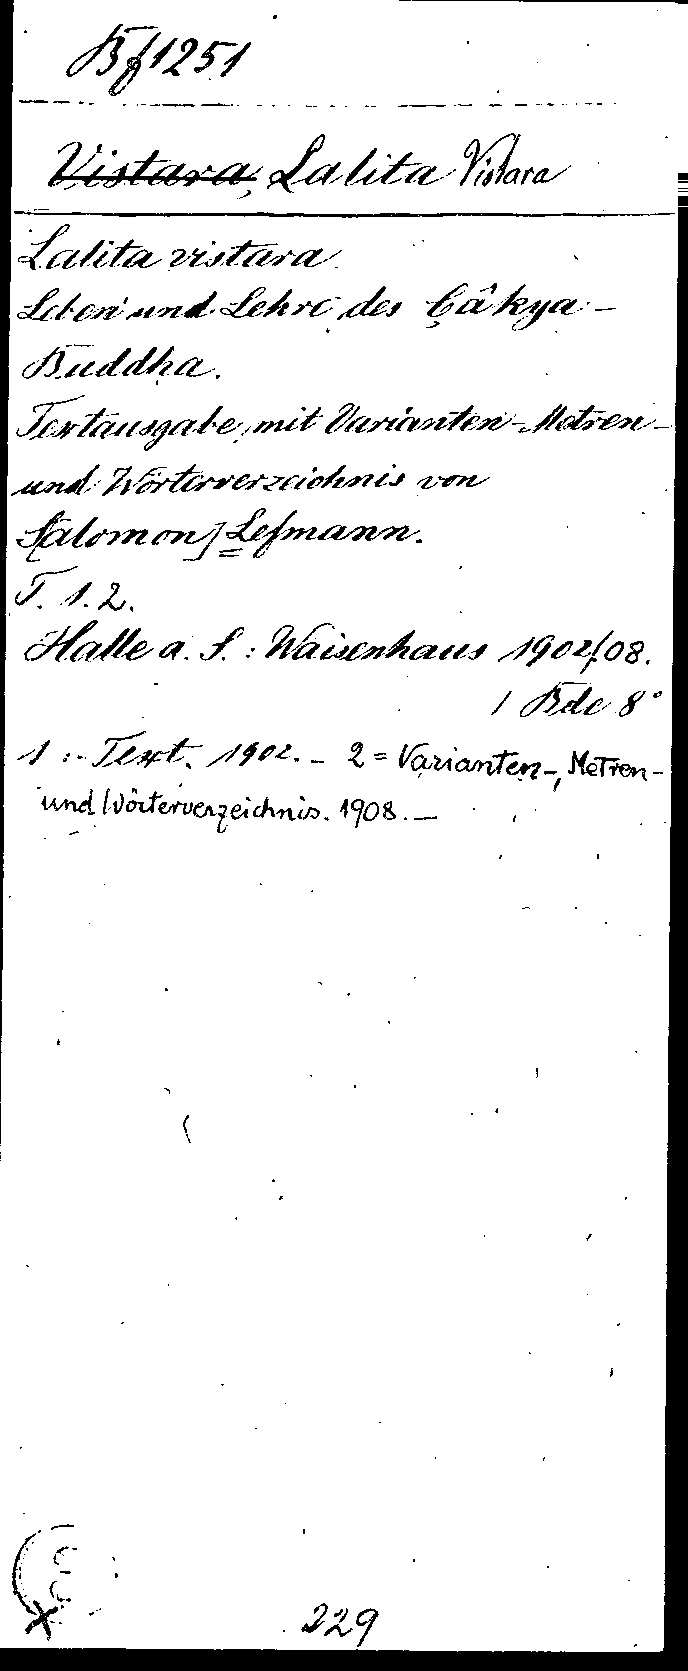 Bf 1251
Vistara, Lalita Vistara
Lalita vistara.
Leben und Lehre des Çâkya-
Buddha.
Textausgabe mit Varianten-Metren-
und Wörterverzeichnis von
S[alomon] Lefmann.
T. 1. 2.
Halle a. S. : Waisenhaus 1902/08.
Bde 8°
1 :- Text. 1902. - 2 = Varianten-, Metren-
und Wörterverzeichnis. 1908. -
229